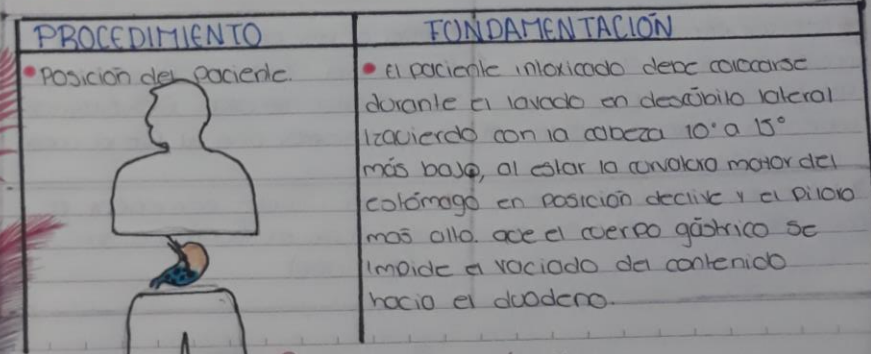 PROCEDIMIENTO
FUNDAMENTACIÓN
• Posición del paciente.
• El paciente intoxicado debe colocarse
durante el lavado en decúbito lateral
Izquierdo con la cabeza 10° a 15°
más bajo, al estar la curvatura motor del
estómago en posición declive y el piloro
mas alto. que el cuerpo gástrico se
impide el vaciado del contenido
hacia el duodeno.